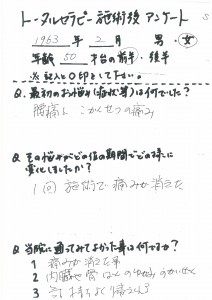 トータルセラピー施術後アンケート
1963年 2月 男・女
年齢 50 才台の前半・後半
※記入と〇印をして下さい。
Q.最初のお悩み(症状等)は何でした?
腰痛 かんせつの痛み
Q.その悩みがどの位の期間でどの様に
変化しましたか?
1回 施術で痛みが消えた
Q.当院に通ってみてよかった事は何ですか?
1 痛みが消えた事
2 内臓や骨
3 気持ちよく